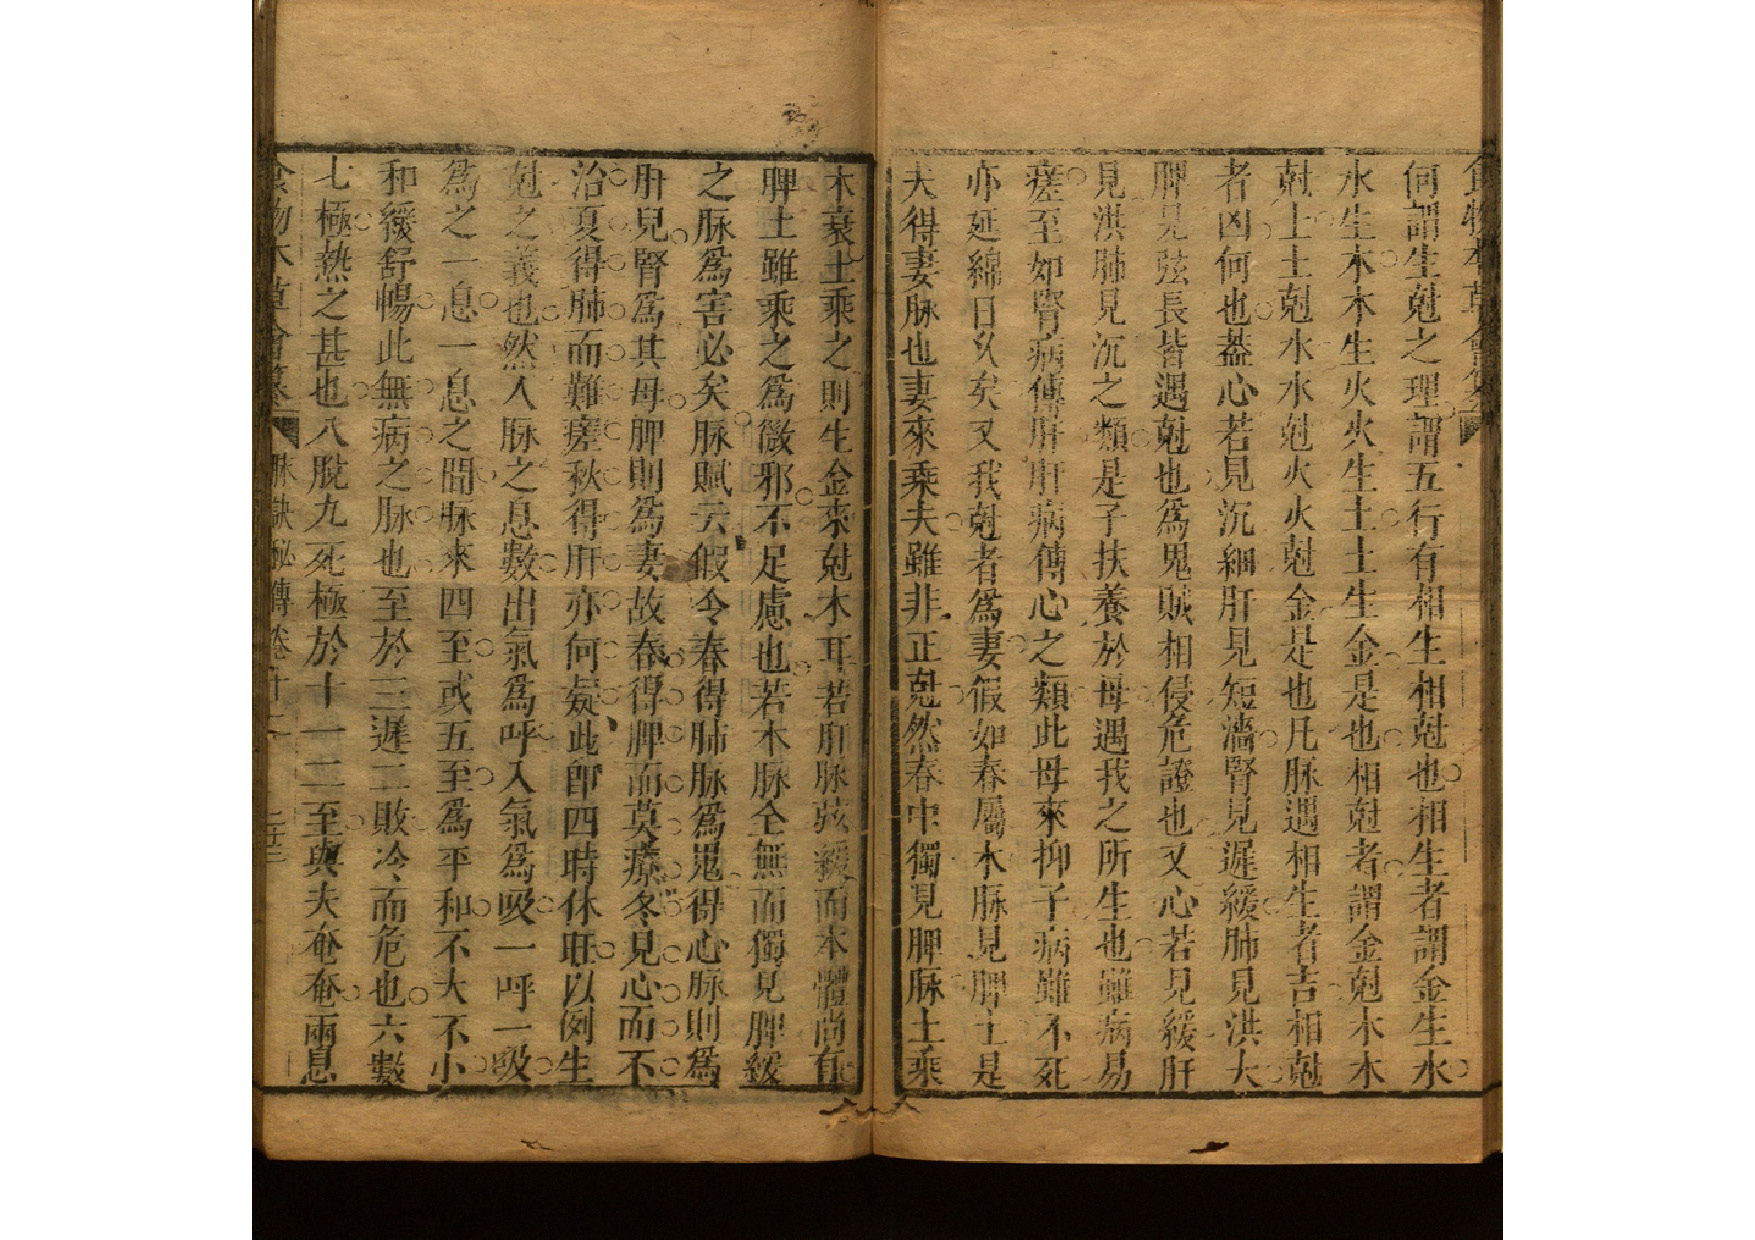 食物本草會纂
何謂生尅之理謂五行有相生相尅也相生者謂金生水
水生木木生火火生土土生金是也相尅者謂金尅木木
尅土土尅水水尅火火尅金是也凡脉遇相生者吉相尅
者凶何也葢心若見沉細肝見短濇腎見遲緩肺見洪大
脾見弦長皆遇尅也爲鬼賊相侵危證也又心若見緩肝
見洪肺見沉之類是子扶養於母遇我之所生也雖病易
瘥至如腎病傳肝肝病傳心之類此母來抑子病雖不死
亦延綿日久矣又我尅者爲妻假如春屬木脉見脾土是
夫得妻脉也妻來乘夫雖非正尅然春中獨見脾脉土乘
木衰土乘之則生金來尅木耳若肝脉弦緩而本體尚有
脾土雖乘之爲微邪不足慮也若木脉全無而獨見脾緩
之脉爲害必矣脉賦云假令春得肺脉爲鬼得心脉則爲
肝兒腎爲其母脾則爲妻故春得脾而莫療冬見心而不
治夏得肺而難瘥秋得肝亦何疑此卽四時休旺以例生
尅之義也然人脉之息數出氣爲呼入氣爲吸一呼一吸
爲之一息一息之間脉來四至或五至爲平和不大不小
和緩舒暢此無病之脉也至於三遲二敗冷而危也六數
七極熱之甚也八脫九死極於十一二至與夫奄奄兩息
食物本草會纂 脉訣秘傳卷十二